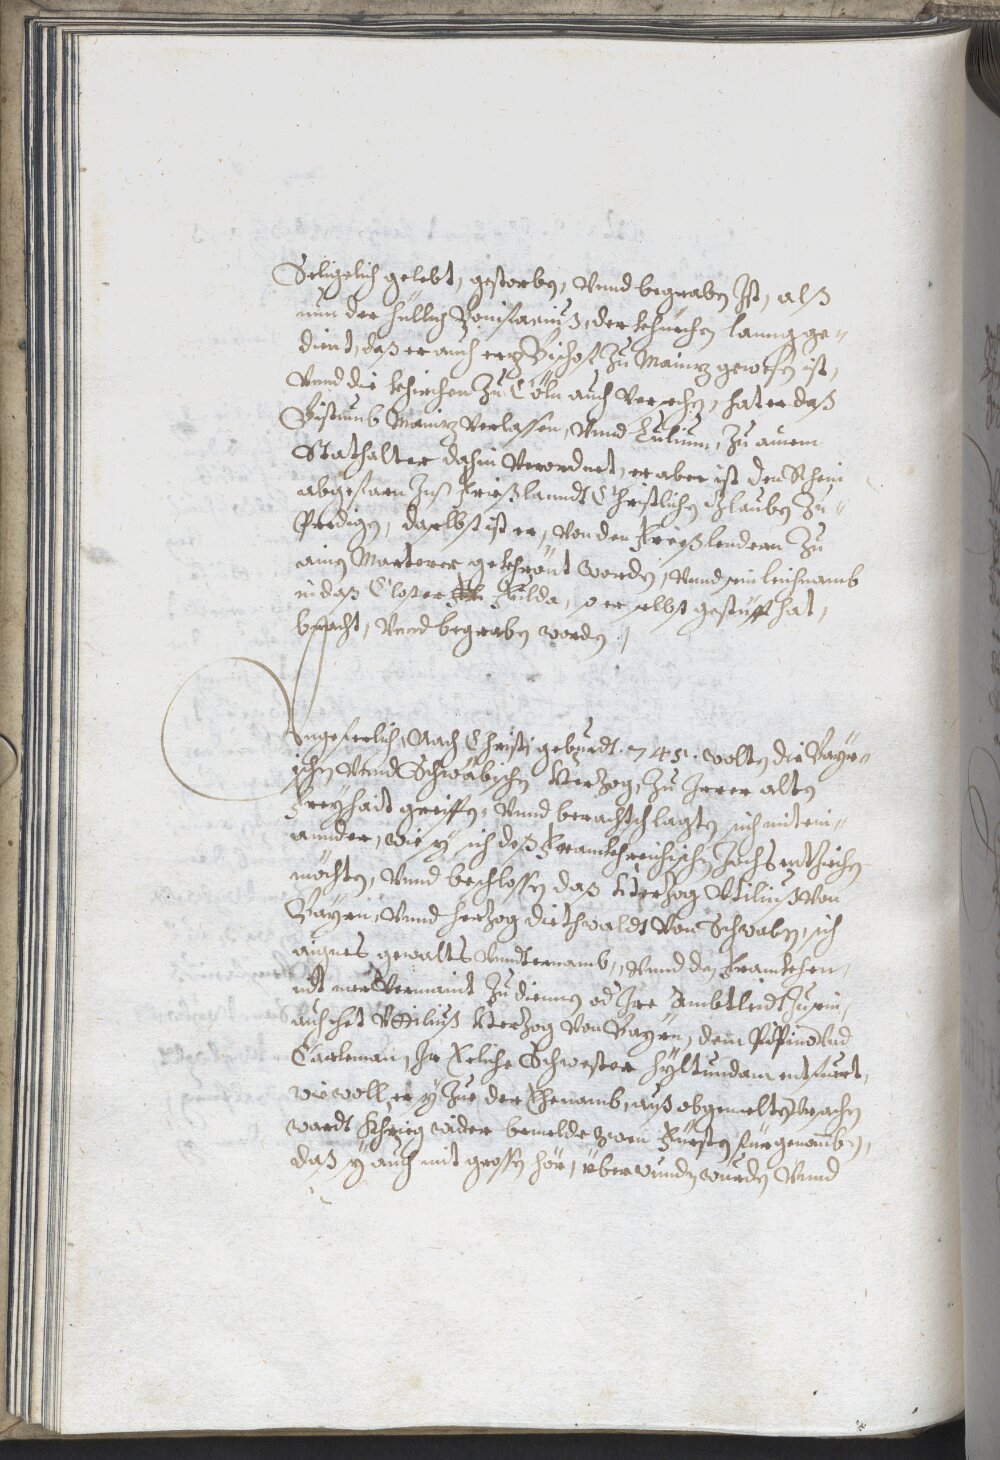 Seligelich gelebt, gestorben, Vnnd begraben Ist, alß
nun der heillig Bonifacius, der kürchen lanng ge-
dient, daß er auch ertz Bischof zu Maintz gewesen ist,
Vnnd die kirchen Zu Cöln auch Versechen, hat er daß
Bistumb Maintz Verlassen, Vnnd Lulum, Zu ainem
Stathalter dahin Verordnet, er aber ist den Rhein
abgefaren Inß Frießlanndt Christlichen Glauben Zu-
Predigen, daselbst ist er, Von den Frießlendern Zu
ainen Marterer gekrönt worden, Vnnd sein leichnamb
in daß Closter Fulda, so er selbst gestifft hat,
bracht, Vnnd begraben worden.
Vngeferlich, Nach Christi geburdt .745. wolten die Bayr-
ischen Vnnd Schwäbischen Hertzog, Zu Irer alten
Freyhait greiffen, Vnnd berathschlagten sich mitein-
annder, wie sy sich deß Frannckhreichischen Jochs entziechen
möchten, Vnnd beschlossen daß Hertzog Vtiluß Von
Bayrn, Vnnd hertzog diethwaldt Von Schwaben, sich
aignes gewalts Vndternamb, Vnnd den Frannckhen,
nit mer Vermaint Zu dienen od Ire Ambtleidt Zu sein,
auch het Vttiluß Hertzog Von Bayrn, dem Pipino Vnd
Carleman, Ir Eeliche Schwester Hyltrudam entfuert,
wiewoll er sy Zue der Ehe namb, auß obgemelten Vrsachen
wardt Khrieg wider bemelde zwen Fürsten fürgenomben,
daß sy auch mit grossen hör, überwunden wurden Vnnd